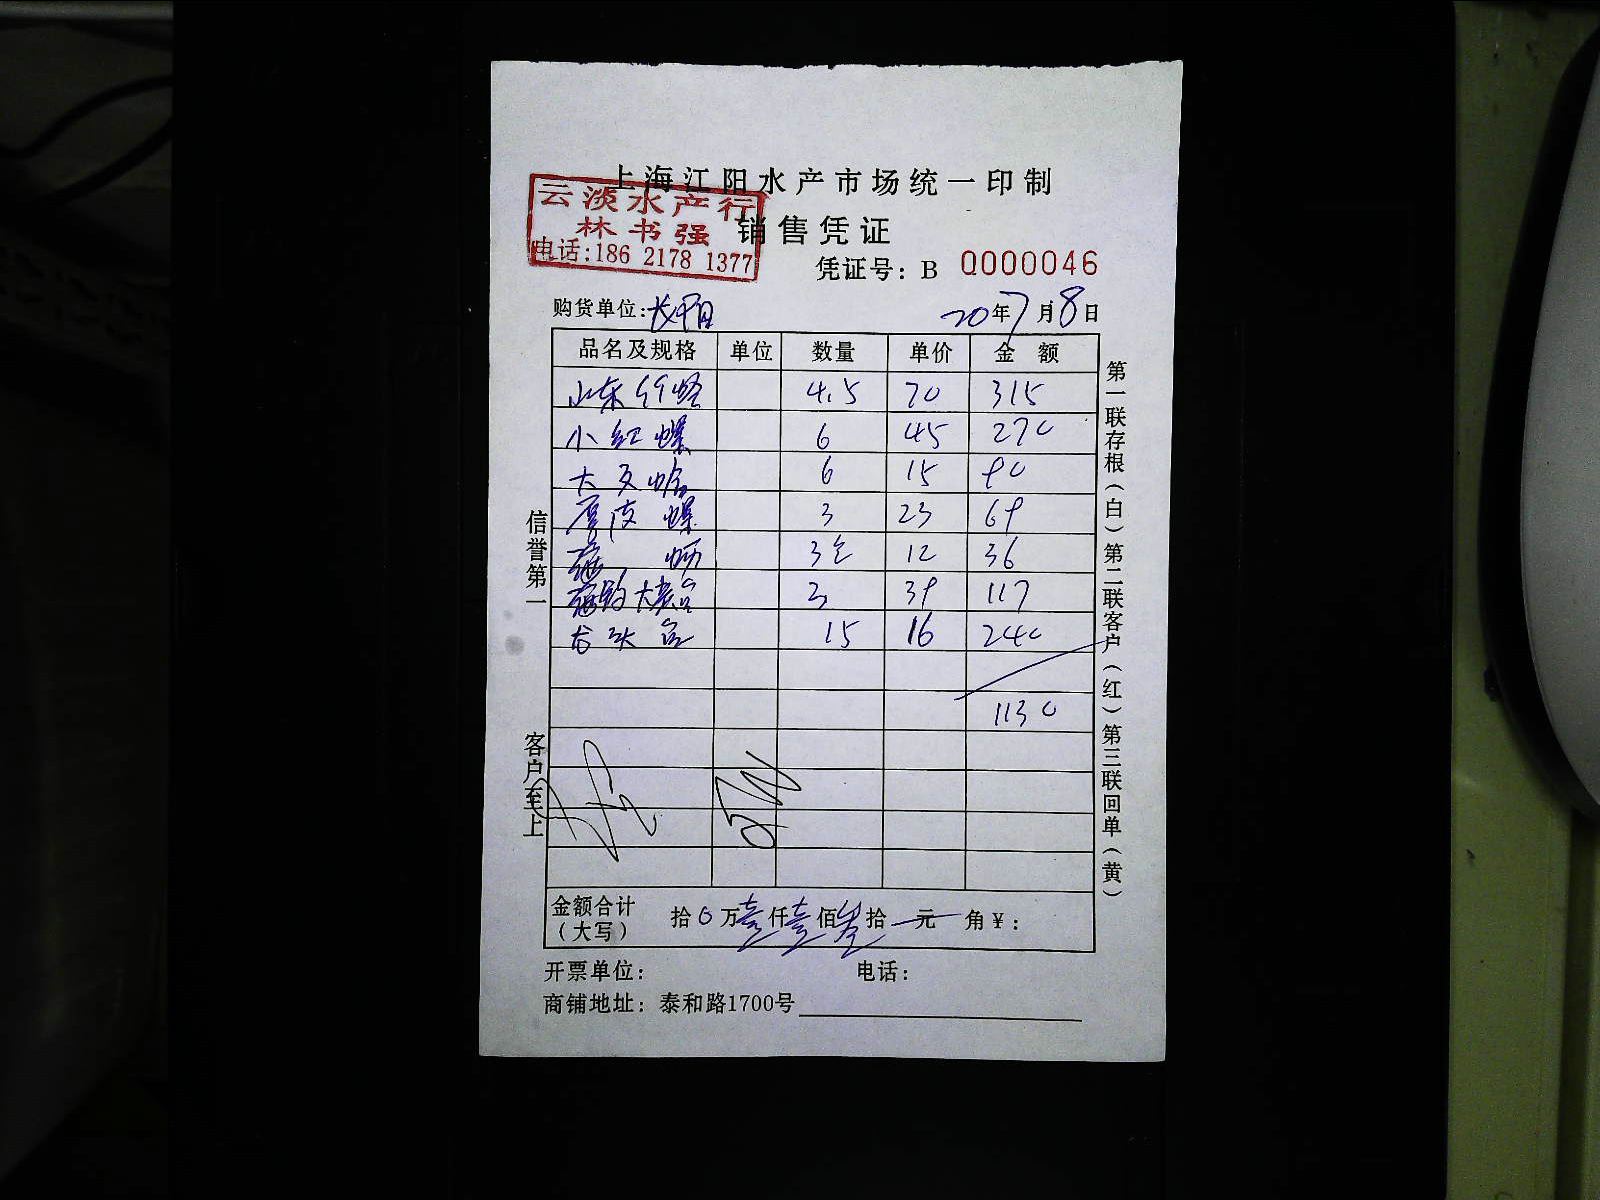 上海江阳水产市场统一印制
云淡水产行
林书强
电话:186 2178 1377
销售凭证
凭证号: B 0000046
购货单位:长阳
20年7月8日
品名及规格 单位 数量 单价 金额
山东 蛏 4.5 70 315
小红螺 6 45 270
大 蛤 6 15 90
厚皮螺 3 23 69
海蛎 3 12 36
海 大 3 39 117
龙头 15 16 240
1130
金额合计(大写) 拾0万壹仟壹佰叁拾元 角¥:
开票单位: 电话:
商铺地址: 泰和路1700号
信誉第一
客户至上
第一联存根(白)第二联客户(红)第三联回单(黄)